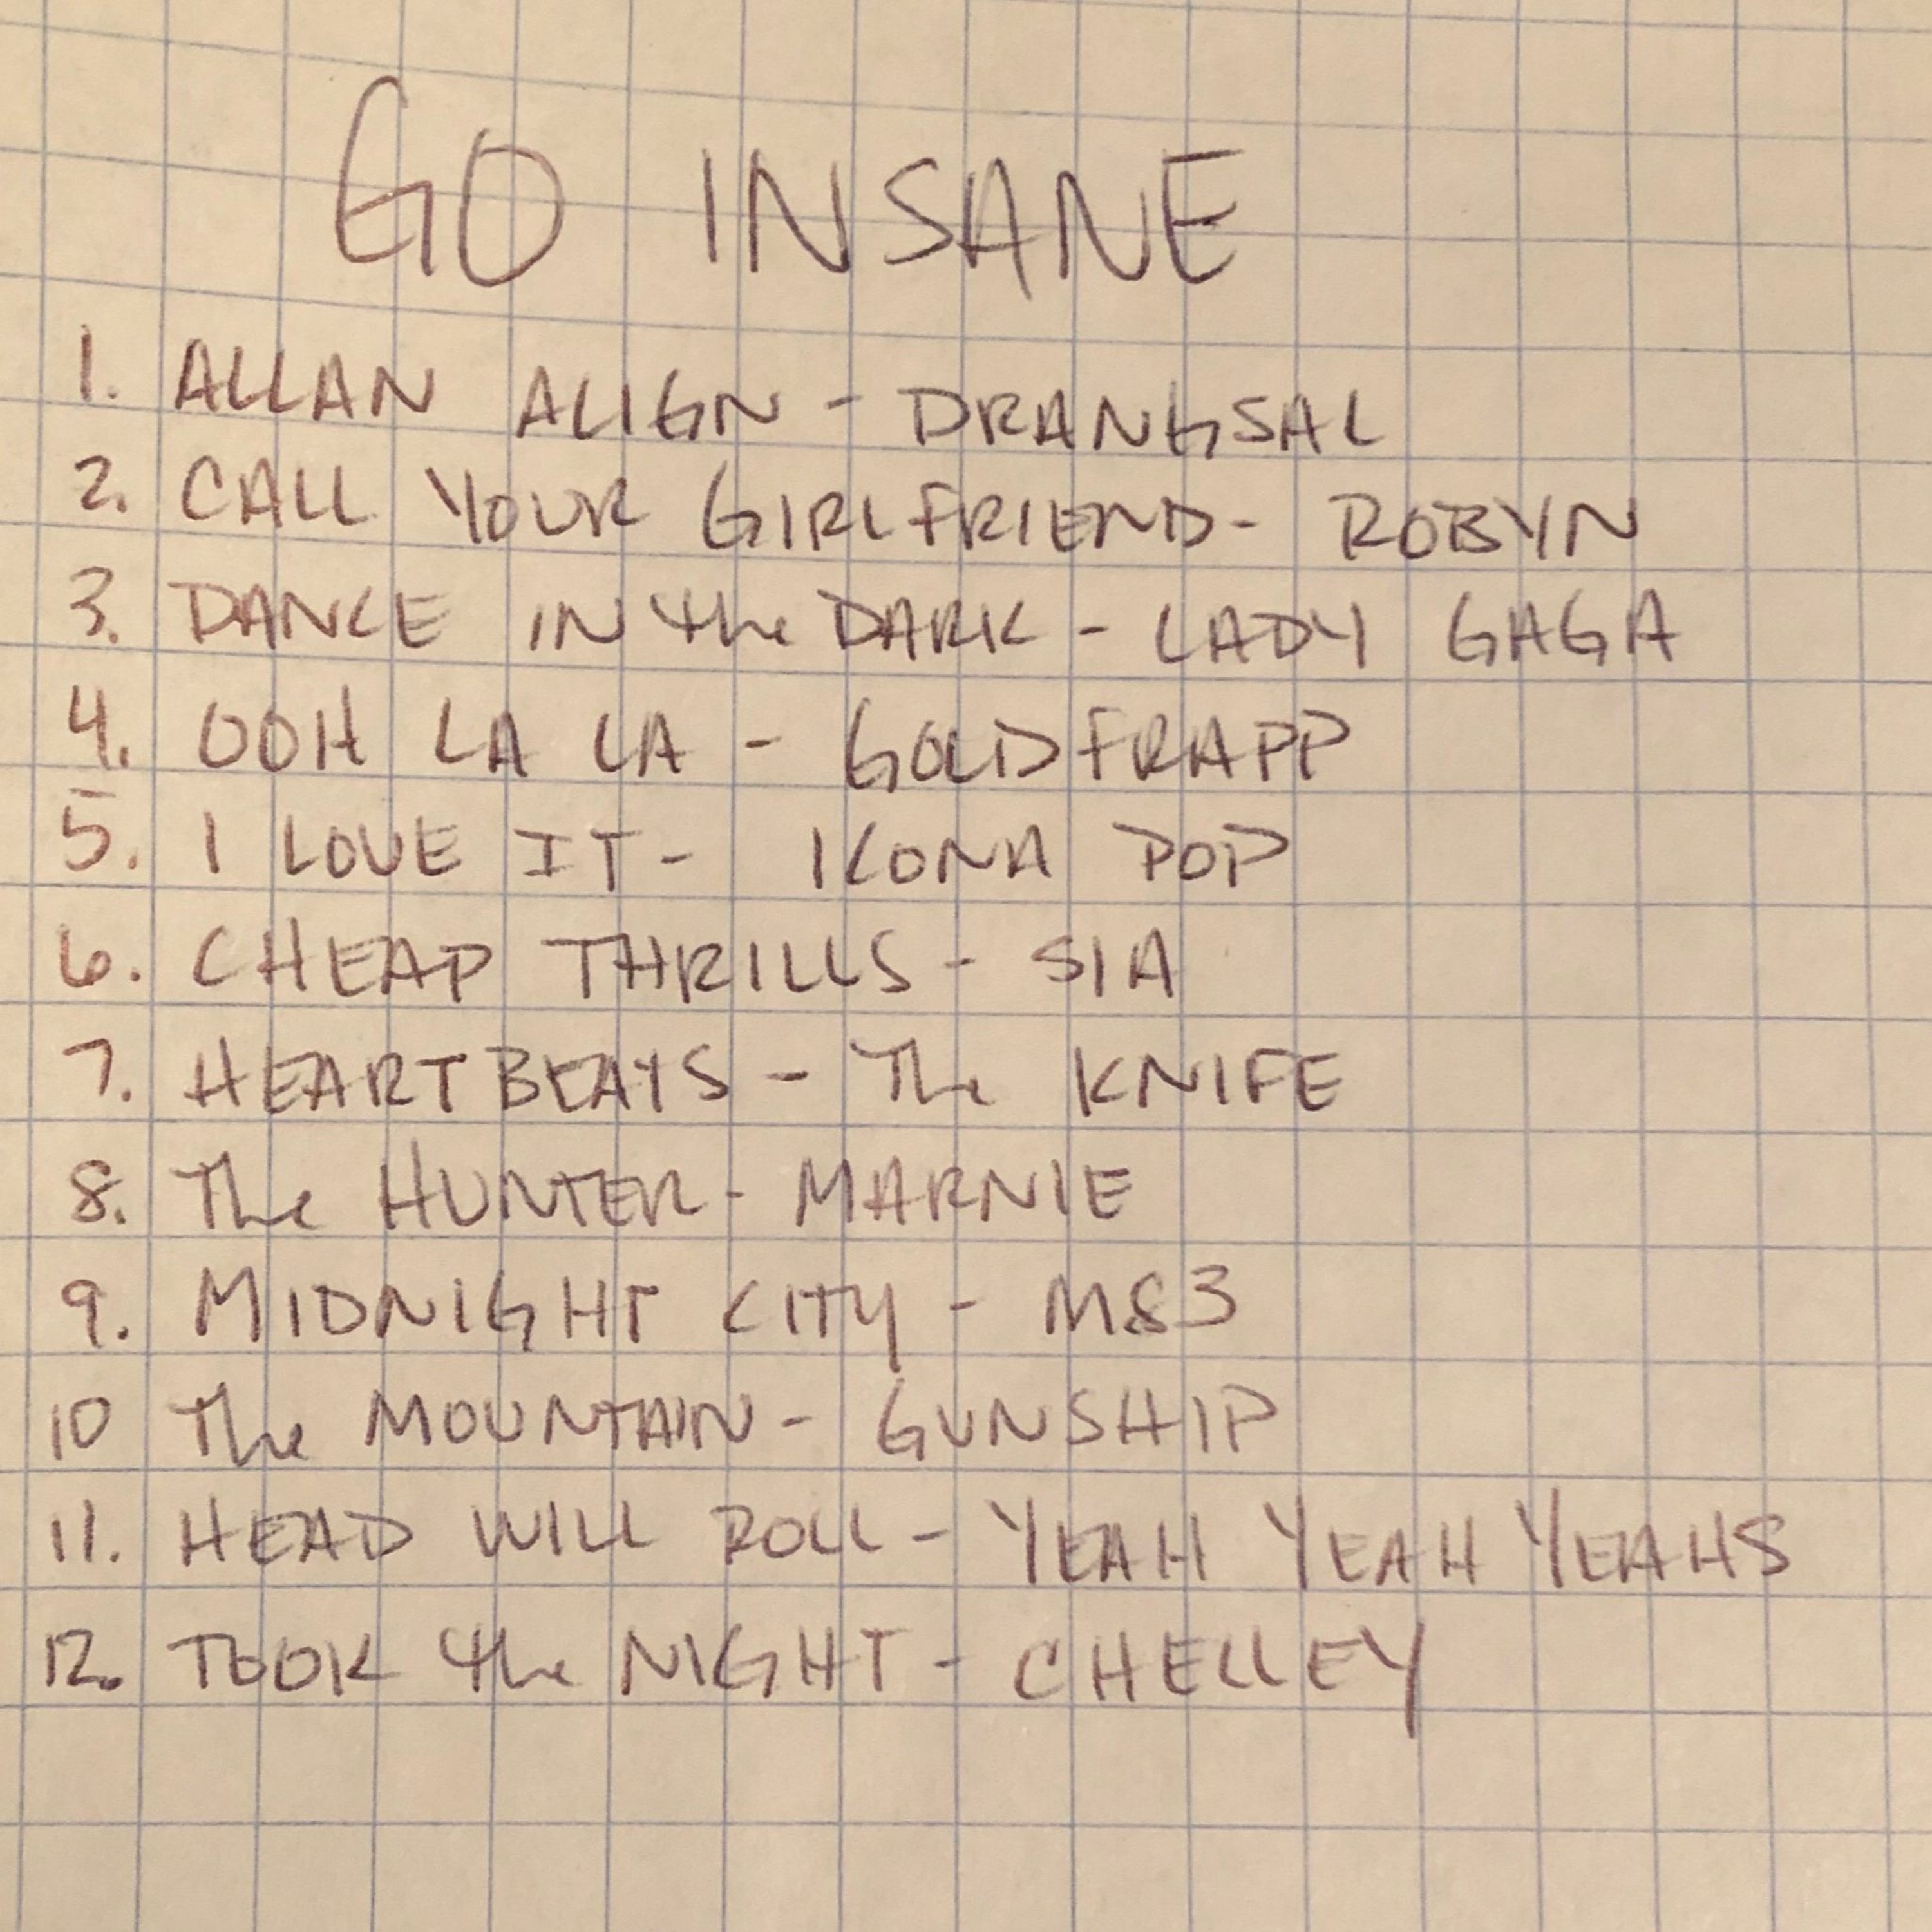 GO INSANE
1. ALLAN ALIGN - DRANGSAL
2. CALL YOUR GIRLFRIEND - ROBYN
3. DANCE IN the DARK - LADY GAGA
4. OOH LA LA - GOLDFRAPP
5. I LOVE IT - ICONA POP
6. CHEAP THRILLS - SIA
7. HEARTBEATS - The KNIFE
8. The HUNTER - MARNIE
9. MIDNIGHT CITY - M83
10 The MOUNTAIN - GUNSHIP
11. HEAD WILL ROLL - YEAH YEAH YEAHS
12. TOOK the NIGHT - CHELLEY